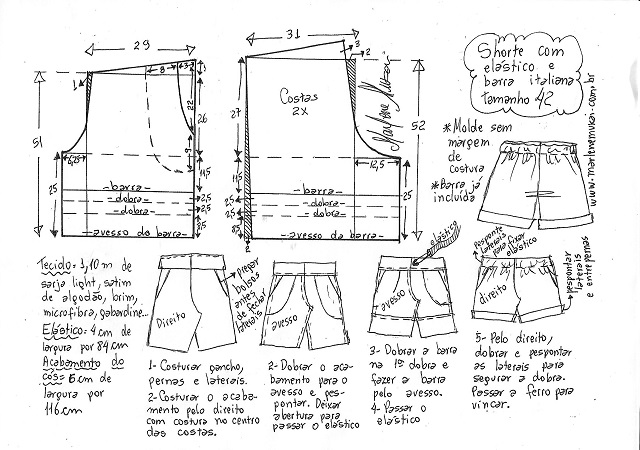 29
31
Shorte com
elástico e
barra italiana
tamanho 42
1
8
3
3
22
26
9
51
6,25
11,5
25
barra
dobra
dobra
2,5
2,5
avesso da barra
3
2
Costas
2x
27
52
12,5
11,5
25
barra
dobra
dobra
2,5
2,5
8,5
avesso da barra
2
Marlene Mukai
www.marlenemukai.com.br
*Molde sem
margem
de
costura
*Barra já
incluída
Tecido= 1,10 m de
sarja light, satim
de algodão, brim,
microfibra, gabardine...
Elástico= 4 cm de
largura por 84 cm
Acabamento do
cós= 6 cm de
largura por
116 cm
Direito
pregar
bolsos
antes
de fechar
laterais
1- Costurar gancho,
pernas e laterais.
2- Costurar o acaba-
mento pelo direito
com costura no centro
das costas.
avesso
2- Dobrar o aca-
bamento para o
avesso e pes-
pontar. Deixar
abertura para
passar o elástico
elástico
avesso
3- Dobrar a barra
na 1ª dobra e
fazer a barra
pelo avesso.
4- Passar o
elástico
Pesponte
laterais
para fixar
elástico
direito
pespontar
laterais
e entrepernas
5- Pelo direito,
dobrar e pespontar
as laterais para
segurar a dobra.
Passar a ferro para
vincar.